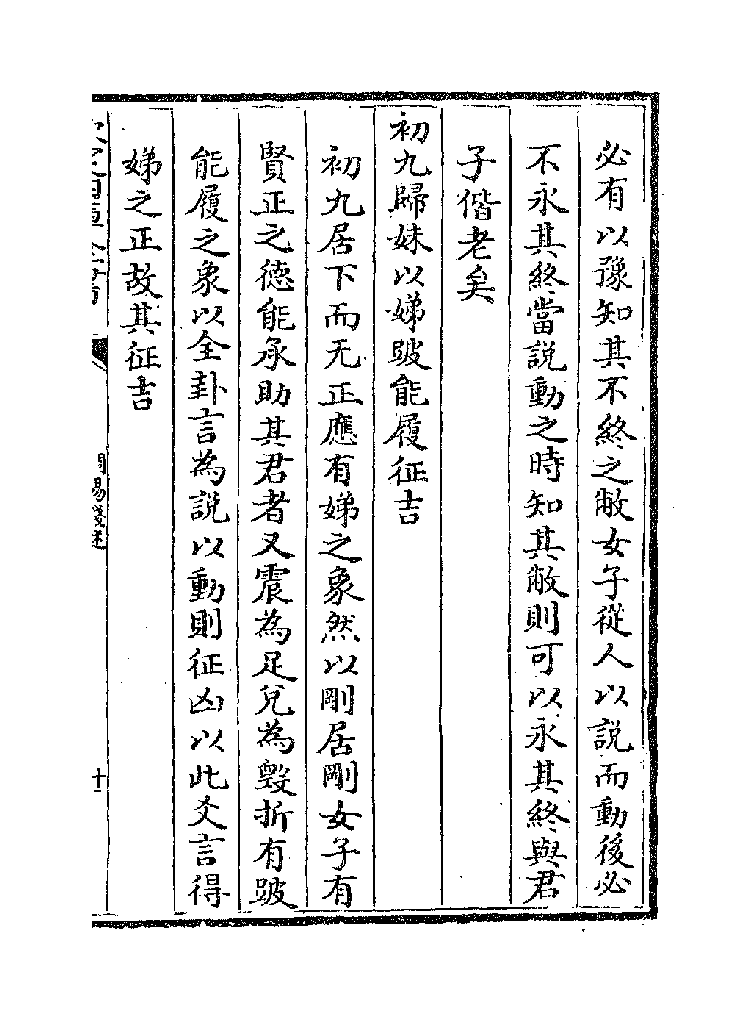 必有以豫知其不終之敝女子從人以説而動後必
不永其終當説動之時知其敝則可以永其終與君
子偕老矣
初九歸妹以娣跛能履征吉
初九居下而无正應有娣之象然以剛居剛女子有
賢正之德能承助其君者又震為足兌為毀折有跛
能履之象以全卦言為説以動則征凶以此爻言得
娣之正故其征吉
周易淺述
十